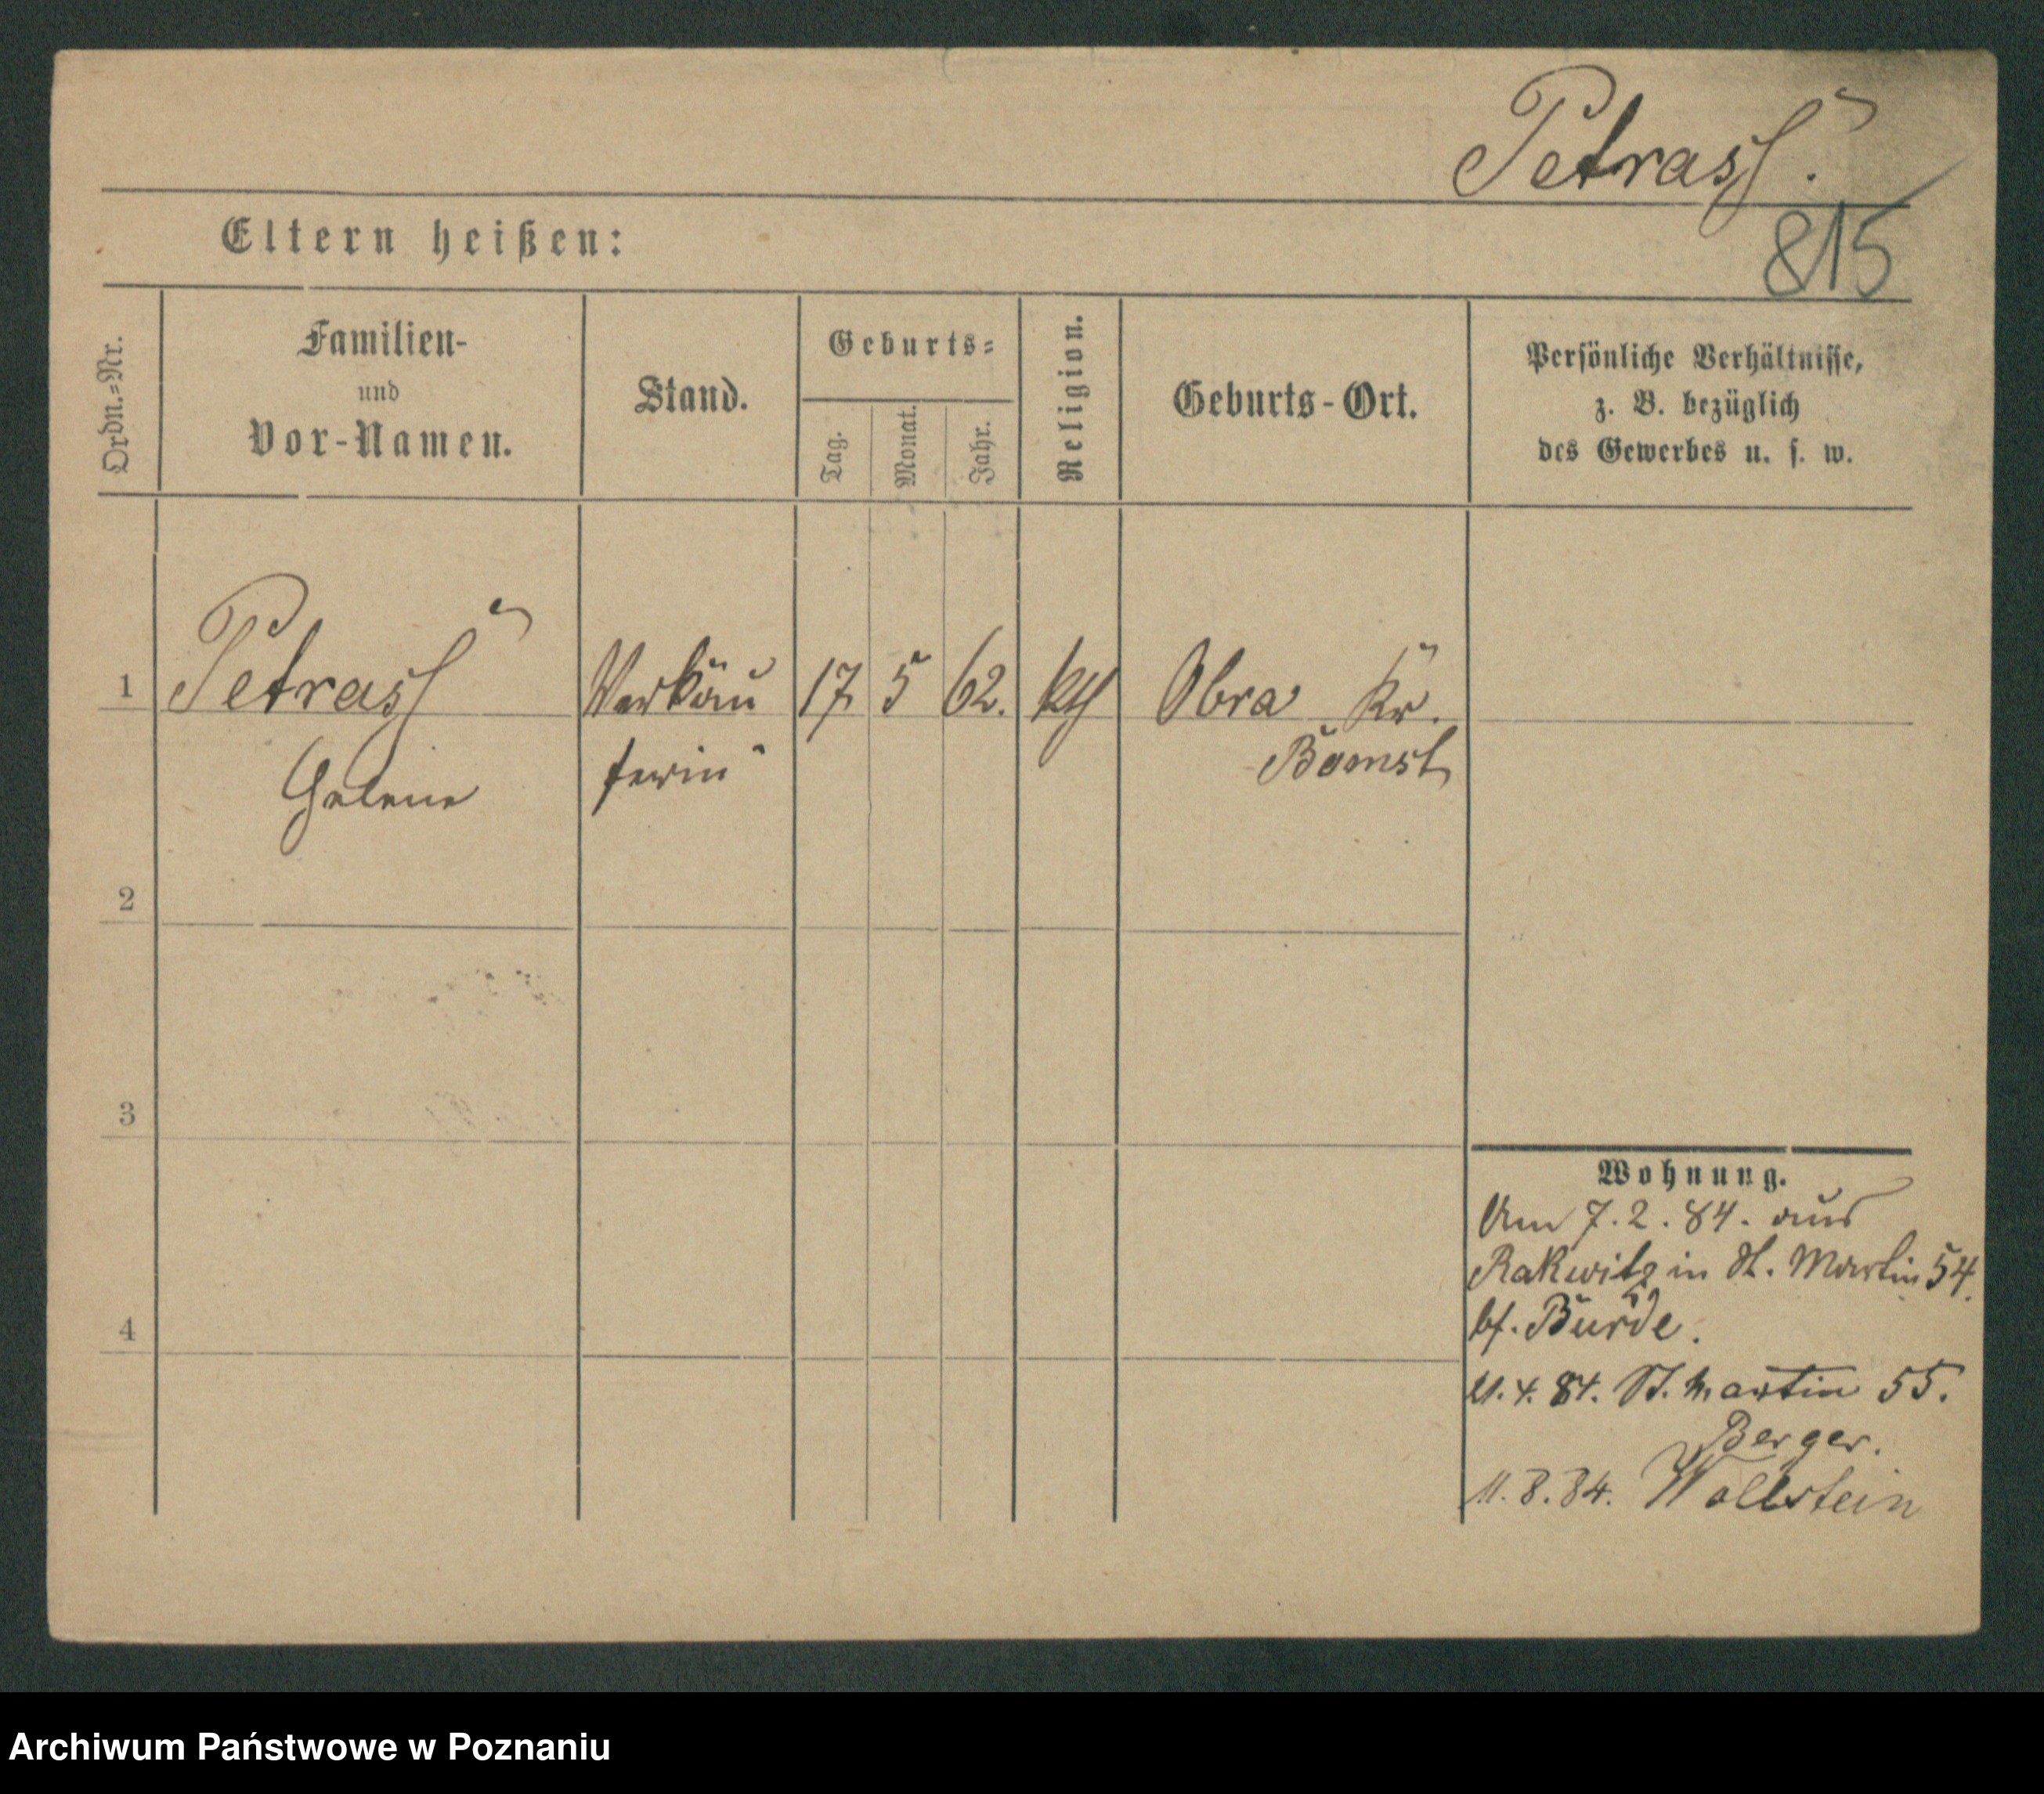 Petrasch.
815
Eltern heißen:
Ordn.=Nr.
Familien-
und
Vor-Namen.
Stand.
Geburts=
Tag.
Monat.
Jahr.
Religion.
Geburts-Ort.
Persönliche Verhältnisse,
z. B. bezüglich
des Gewerbes u. s. w.
1 Petrasch Verkäu 17 5 62. kth Obra Kr.
Helene ferin Bomst
2
3
4
Wohnung.
Am 7.2.84. aus
Rakwitz in St. Martin 54.
bf. Burde.
21.4.84. St. Martin 55.
Berger.
11.8.84. Wollstein
Archiwum Państwowe w Poznaniu